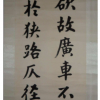 欲故廣車不
於狹路仄徑